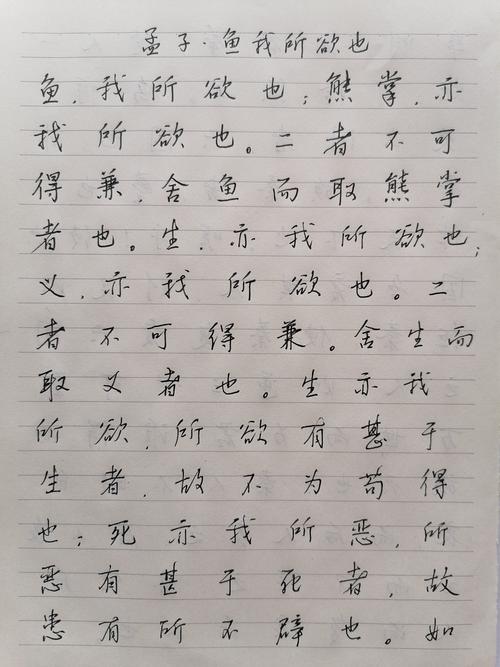 孟子·鱼我所欲也
鱼，我所欲也；熊掌，亦
我所欲也。二者不可
得兼，舍鱼而取熊掌
者也。生，亦我所欲也；
义，亦我所欲也。二
者不可得兼。舍生而
取义者也。生亦我
所欲，所欲有甚于
生者，故不为苟得
也；死亦我所恶，所
恶有甚于死者，故
患有所不辟也。如